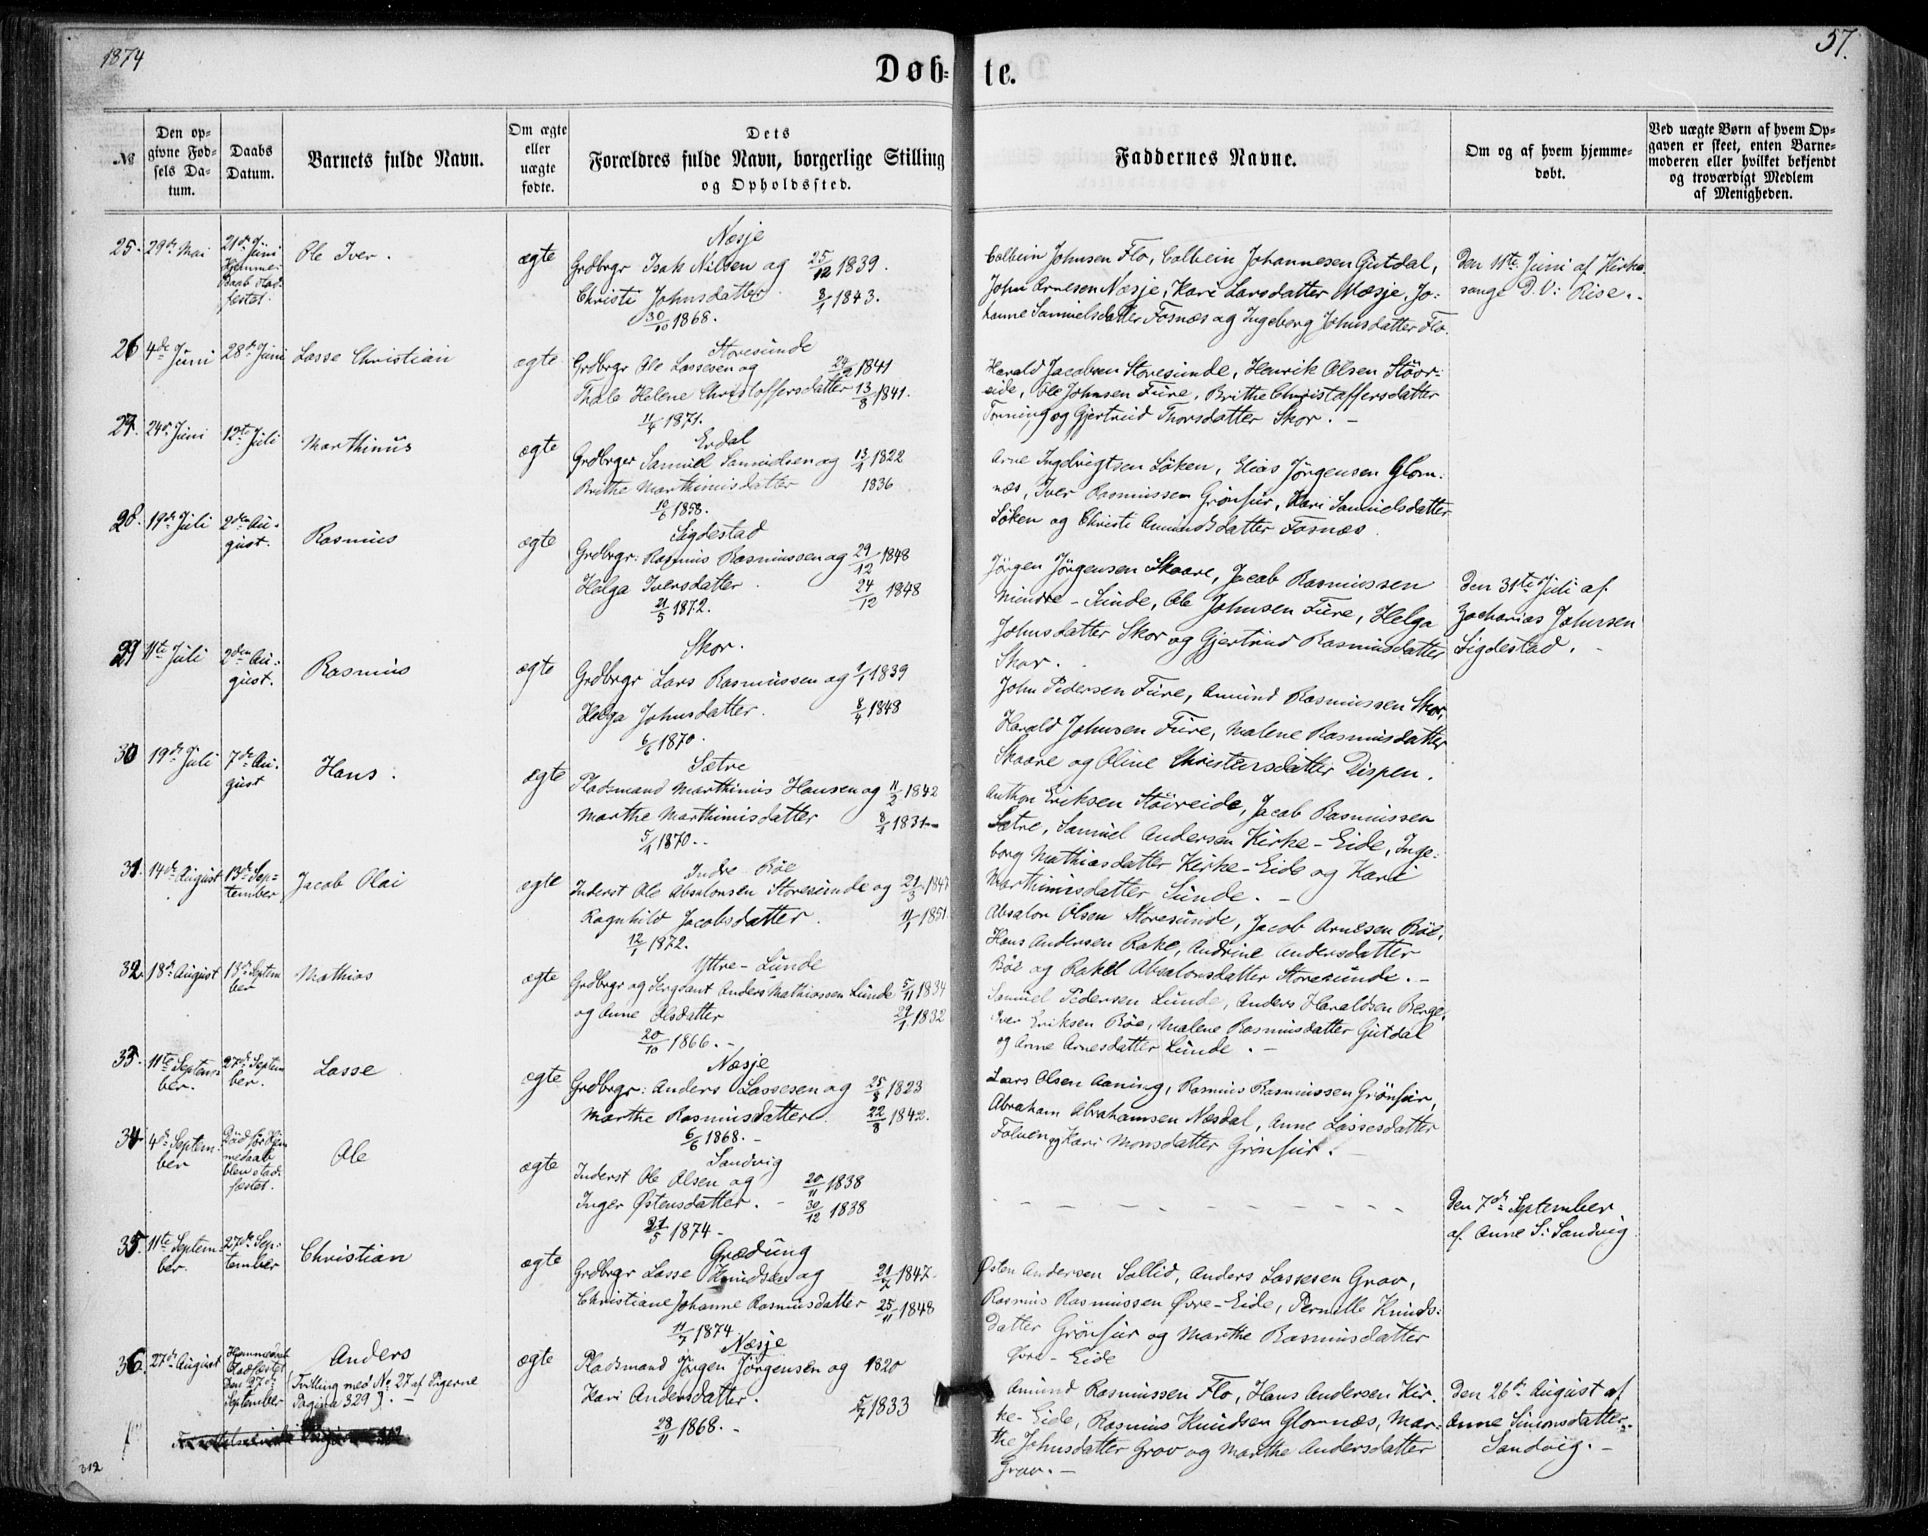 1874
57.
Døb-te.
№
Den op-
givne Fød-
sels Da-
tum.
Daabs
Datum.
Barnets fulde Navn.
Om ægte
eller
uægte
fødte.
Dets
Forældres fulde Navn, borgerlige Stilling
og Opholdssted.
Faddernes Navne.
Om og af hvem hjemme-
døbt.
Ved uægte Børn af hvem Op-
gaven er skeet, enten Barne-
moderen eller hvilket bekjendt
og troværdigt Medlem
af Menigheden.
25. 29de Mai
21de Juni
Hjemme-
Daab stad-
festet.
Ole Iver.
ægte
Næsje
Grdbrgr Isak Nilsen og 25/12 1839.
Christi Johnsdatter 8/1 1843.
30/10 1868.
Colbein Johnsen Flo, Colbein Johannesen Gutdal,
John Arnesen Næsje, Kari Larsdatter Næsje, Jo-
hanne Samuelsdatter Fosnæs og Ingeborg Johnsdatter Flo.
Den 11te Juni af Kirke-
sange D. V: Rise.
26 4de Juni 28de Juni Lasse Christian
ægte
Storesunde
Grdbrgr Ole Lassesen og 1841
Thale Helene Christoffersdatter 13/8 1841.
11/4 1871.
Harald Jacobsen Storesunde, Henrik Olsen Stöor-
eide, Ole Johnsen Fure, Brithe Christaffersdatter
Tonning og Gjertrud Thorsdatter Skor. –
27. 24de Juni 12te Juli Marthinus
ægte
Erdal
Grdbrger Samuel Samuelsen og 13/1 1822
Brithe Marthinusdatter 1836
10/6 1858.
Arne Ingebrigtsen Löken, Elias Jörgensen Glom-
næs, Iver Rasmussen Grönfur, Kari Samuelsdatter
Löken og Christi Amundsdatter Fosnæs.
28. 19de Juli
2den Au-
gust.
Rasmus
ægte
Sigdestad
Grdbrgr: Rasmus Rasmussen og 29/12 1848
Helga Iversdatter 24/12 1848
21/5 1872.
Jörgen Jörgensen Skaare, Jacob Rasmussen
Mindre-Sunde, Ole Johnsen Fure, Helga
Johnsdatter Skor og Gjertrud Rasmusdatter
Skor.
Den 31te Juli af
Zacharias Johnsen
Sigdestad.
29 11te Juli
2den Au-
gust.
Rasmus
ægte
Skor.
Grdbrgr Lars Rasmussen og 1/1 1839
Helga Johnsdatter. 8/4 1848
6/6 1870.
John Pedersen Fure, Amund Rasmussen Skor,
Harald Johnsen Fure, Malene Rasmusdatter
Skaare og Oline Christensdatter Dispen.
30 19de Juli
7de Au-
gust
Hans.
ægte
Sætre
Pladsmand Marthinus Hansen og 11/2 1842
Marthe Marthinusdatter 8/1 1831
5/1 1870.
Anthon Eriksen Stöireide, Jacob Rasmussen
Sætre, Samuel Andersen Kirke-Eide, Inge-
borg Mathiasdatter Kirke-Eide og Kari
Marthinusdatter Sunde. –
31. 14de August
13de Sep-
tember
Jacob Olai
ægte
Indre-Böe
Inderst Ole Absalonsen Storesunde og 21/3 1847
Ragnhild Jacobsdatter. 11/1 1851
12/1 1872.
Absalon Olsen Storesunde, Jacob Arnesen Böe,
Hans Andersen Rake, Andrine Andersdatter
Böe og Rakel Absalonsdatter Storesunde. –
32. 18de August
13de Septem
ber
Mathias
ægte
Yttre-Lunde
Grdbrgr og Sergeant Anders Mathiassen Lunde 5/11 1834
og Anne Olsdatter 29/1 1832
20/10 1866. –
Samuel Pedersen Lunde, Anders Haraldsen Berge,
Iver Eriksen Böe, Malene Rasmusdatter Gutdal
og Anne Arnesdatter Lunde. –
33. 11te Septem-
ber.
27de Septem
ber.
Lasse
ægte
Næsje
Grdbrgr: Anders Lassesen og 25/8 1823
Marthe Rasmusdatter. 22/8 1842.
6/6 1868. –
Lars Olsen Aaning, Rasmus Rasmussen Grönfur,
Abraham Abrahamsen Næsdal, Anne Lassesdatter
Folven og Kari Monsdatter Grönfur.
34. 4de Septem-
ber
Död för Hjem
medaab
blev stad-
fæstet.
Ole
ægte
Sandvig
Inderst Ole Olsen og 20/11 1838
Inger Østensdatter. – 30/12 1838
21/5 1874 –
Den 7de September
af Anne S: Sandvig
35. 11te Septem-
ber.
27de Sep-
tember
Christian
ægte
Grædung
Grdbrgr Lasse Knudsen og 21/7 1847.
Christiane Johanne Rasmusdatter 25/11 1848
11/7 1874
Østen Andersen Sollid, Anders Lassesen Grov,
Rasmus Rasmussen Øvre-Eide, Pernille Knuds-
datter Grönfur og Marthe Rasmusdatter
Øvre-Eide
36. 27de August
Hjemmedaab
Stadfæstet
Den 27de
September
Anders
(Tvilling med No 27 af Pigerne
Pagina 329). –
ægte
Næsje
Pladsmand Jörgen Jörgensen og 1820
Kari Andersdatter. 5/7 1833
28/11 1868. –
Amund Rasmussen Flo, Hans Andersen Kir-
ke-Eide, Rasmus Knudsen Glomnæs, Mar-
the Johnsdatter Grov og Marthe Andersdatter
Grov. –
Den 26de August af
Anne Simonsdatter
Sandvig. –
312